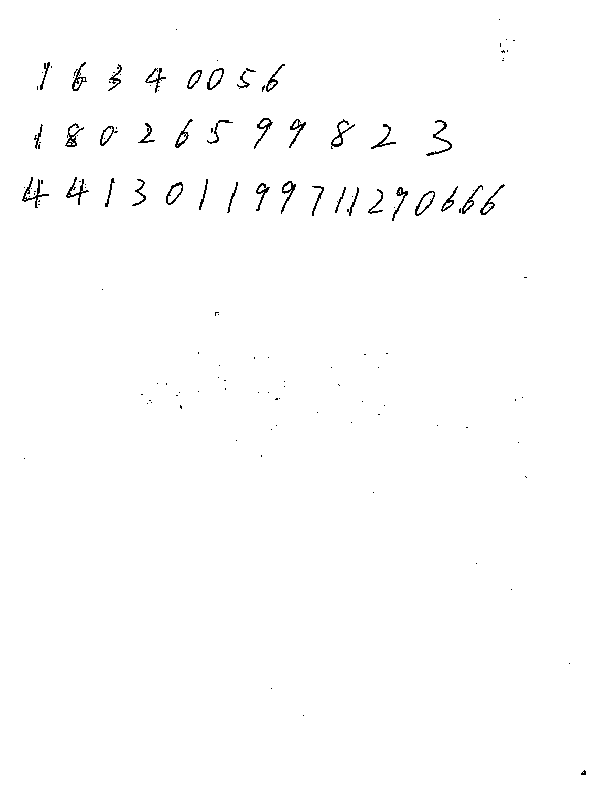 16340056
18026599823
441301199711290666